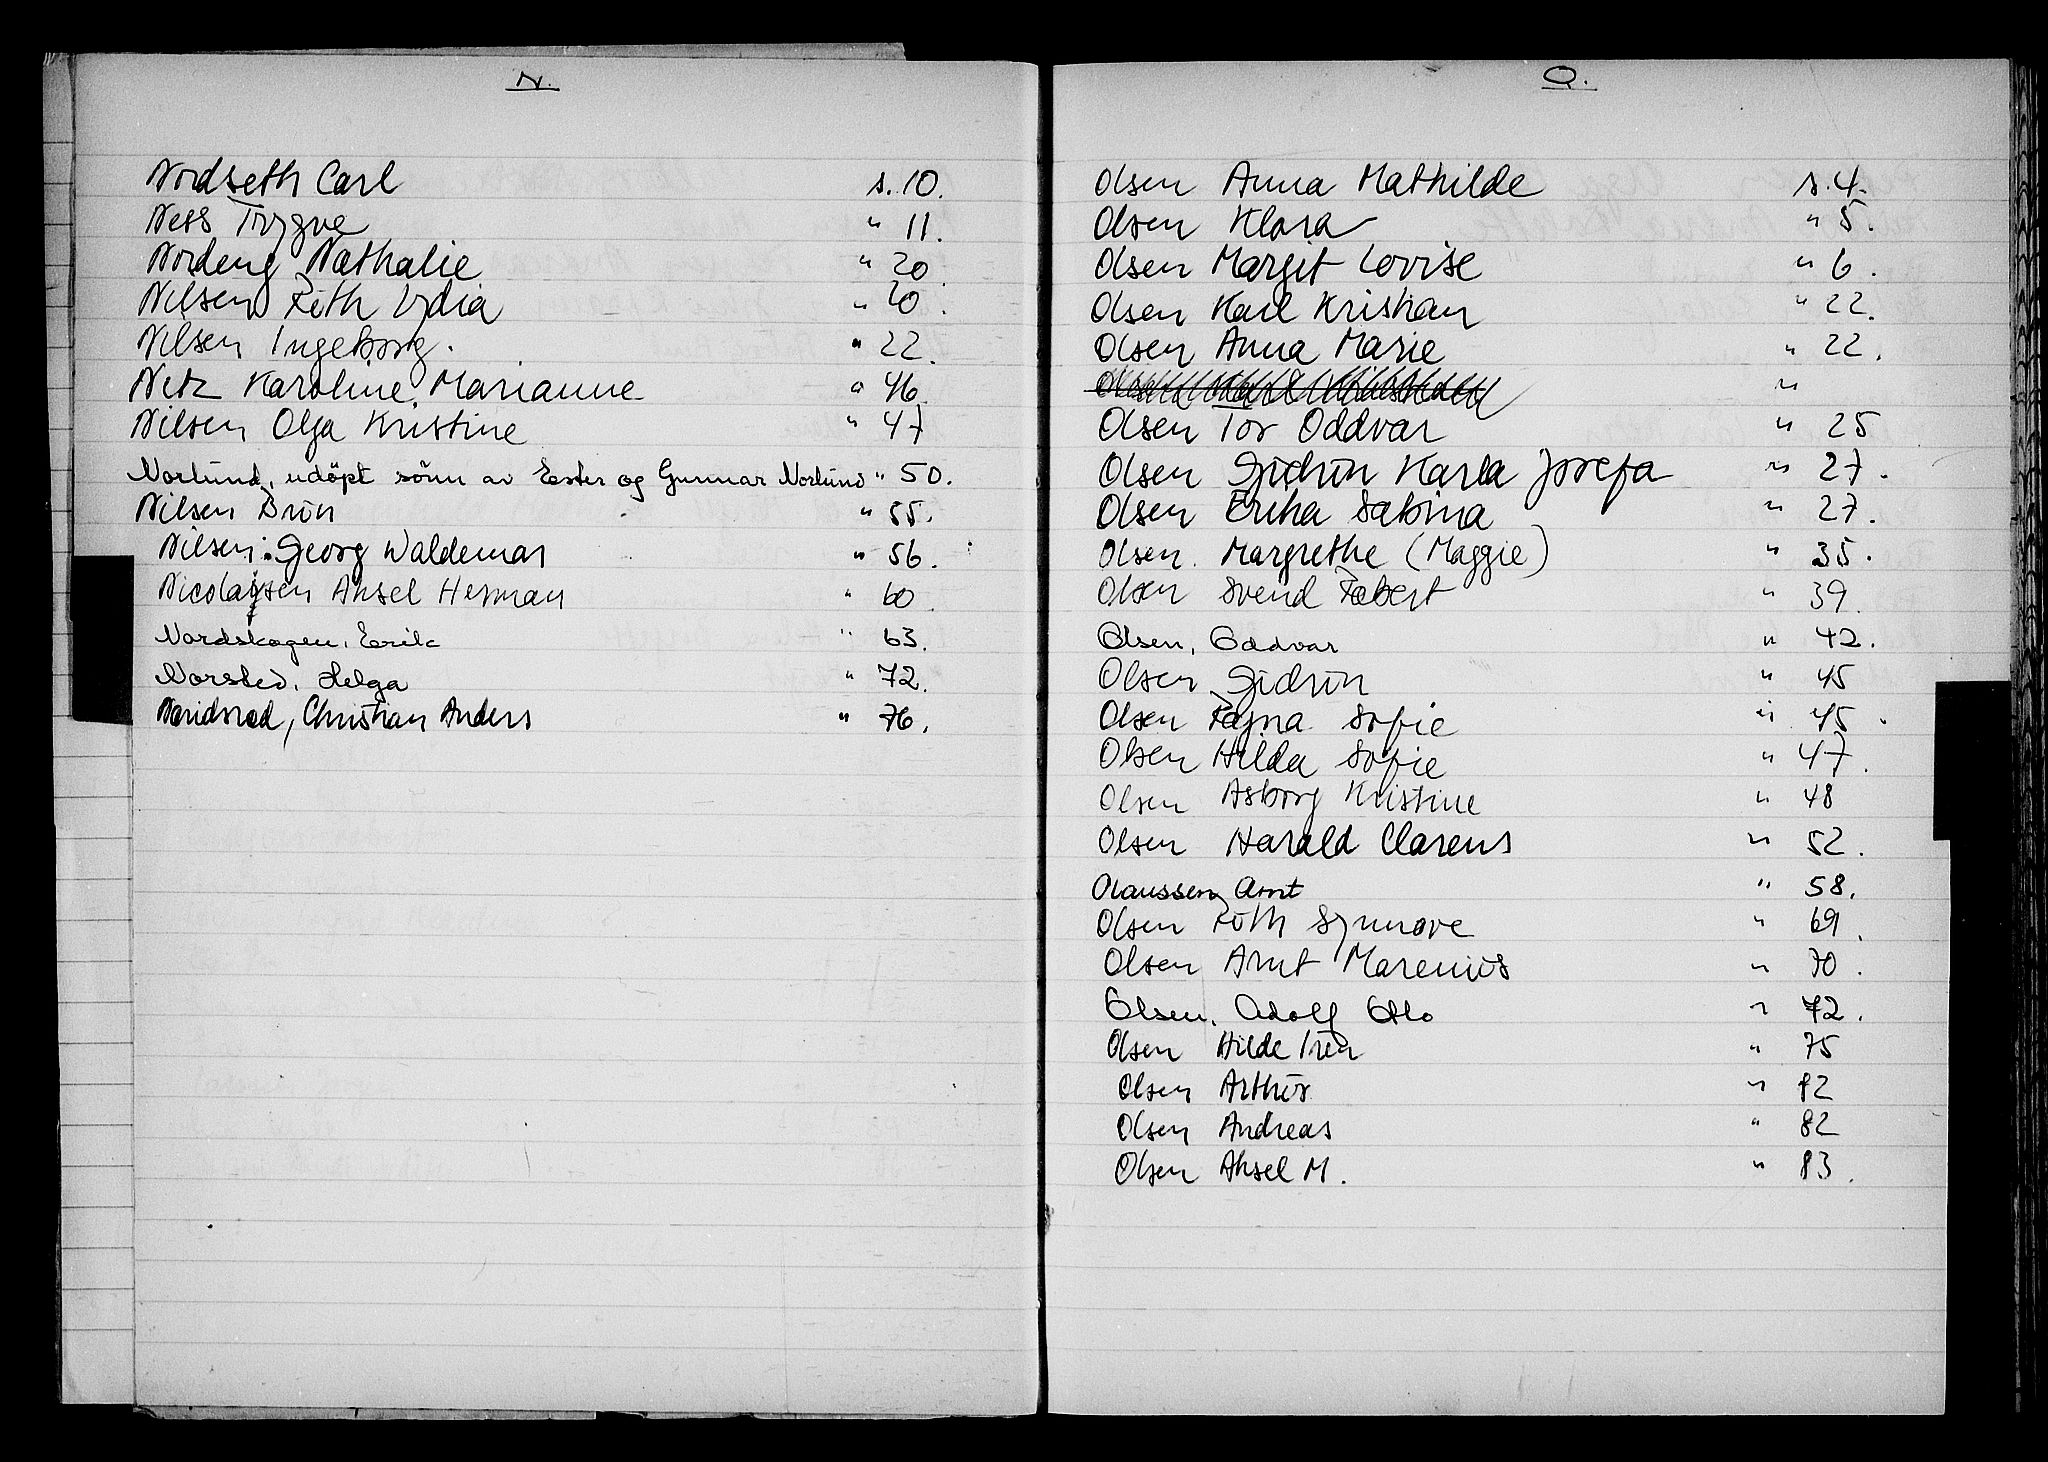 N.
Nordseth Carl s. 10.
Ness Trygve " 11.
Nordeng Nathalie " 20
Nilsen Rŭth Lydia " 20.
Nilsen Ingeborg. " 22.
Netz Karoline Marianne " 46.
Nilsen Olga Kristine " 47
Norlund, udöpt sönn av Ester og Gunnar Norlund " 50.
Nilsen " 55.
Nilsen Georg Waldemar " 56.
Nicolaysen Aksel Herman " 60.
Nordskogen, Erik " 63.
Norsted, Helga " 72.
Christian Anders " 76.
O.
Olsen Anna Mathilde s. 4.
Olsen Klara " 5.
Olsen Margit Lovise " 6.
Olsen Karl Kristian " 22.
Olsen Anna Marie " 22.
"
Olsen Tor Oddvar " 25
Olsen Gŭdrŭn Karla Josefa " 27.
Olsen Erika Sabina " 27.
Olsen Margrethe (Maggie) " 35.
Olsen Svend Robert " 39.
Olsen, Oddvar " 42.
Olsen Gŭdrŭn " 45
Olsen Ragna Sofie " 45.
Olsen Hilda Sofie " 47.
Olsen Asborg Kristine " 48
Olsen Harald Clarens " 52.
Olaussen Arnt " 58.
Olsen Rŭth Synnøve " 69.
Olsen Arnt Mareniŭs " 70.
Olsen, Adolf Otto " 72.
Olsen Hilde Iren " 75
Olsen Arthŭr " 82
Olsen Andreas " 82
Olsen Aksel M. " 83.